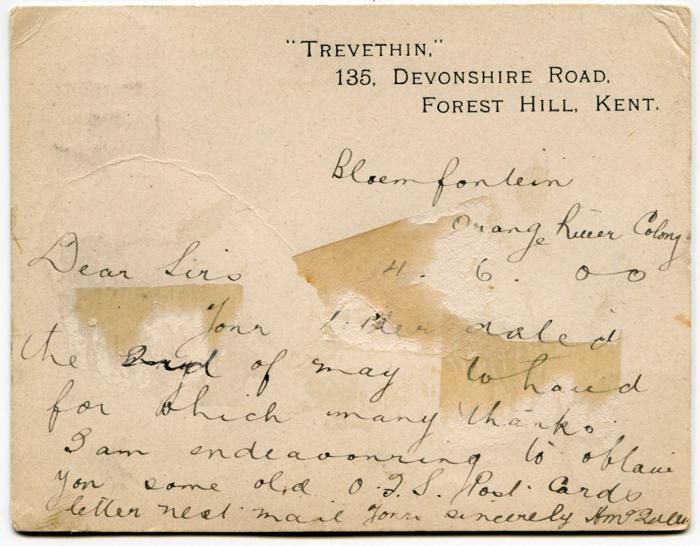 "TREVETHIN,"
135, DEVONSHIRE ROAD,
FOREST HILL, KENT.
Bloemfontein
Orange River Colony
4. 6. 00
Dear Sirs
Your letter dated
the 2nd of may to hand
for which many thanks.
I am endeavouring to obtain
you some old O.F.S. Post Cards
letter next mail Yours sincerely